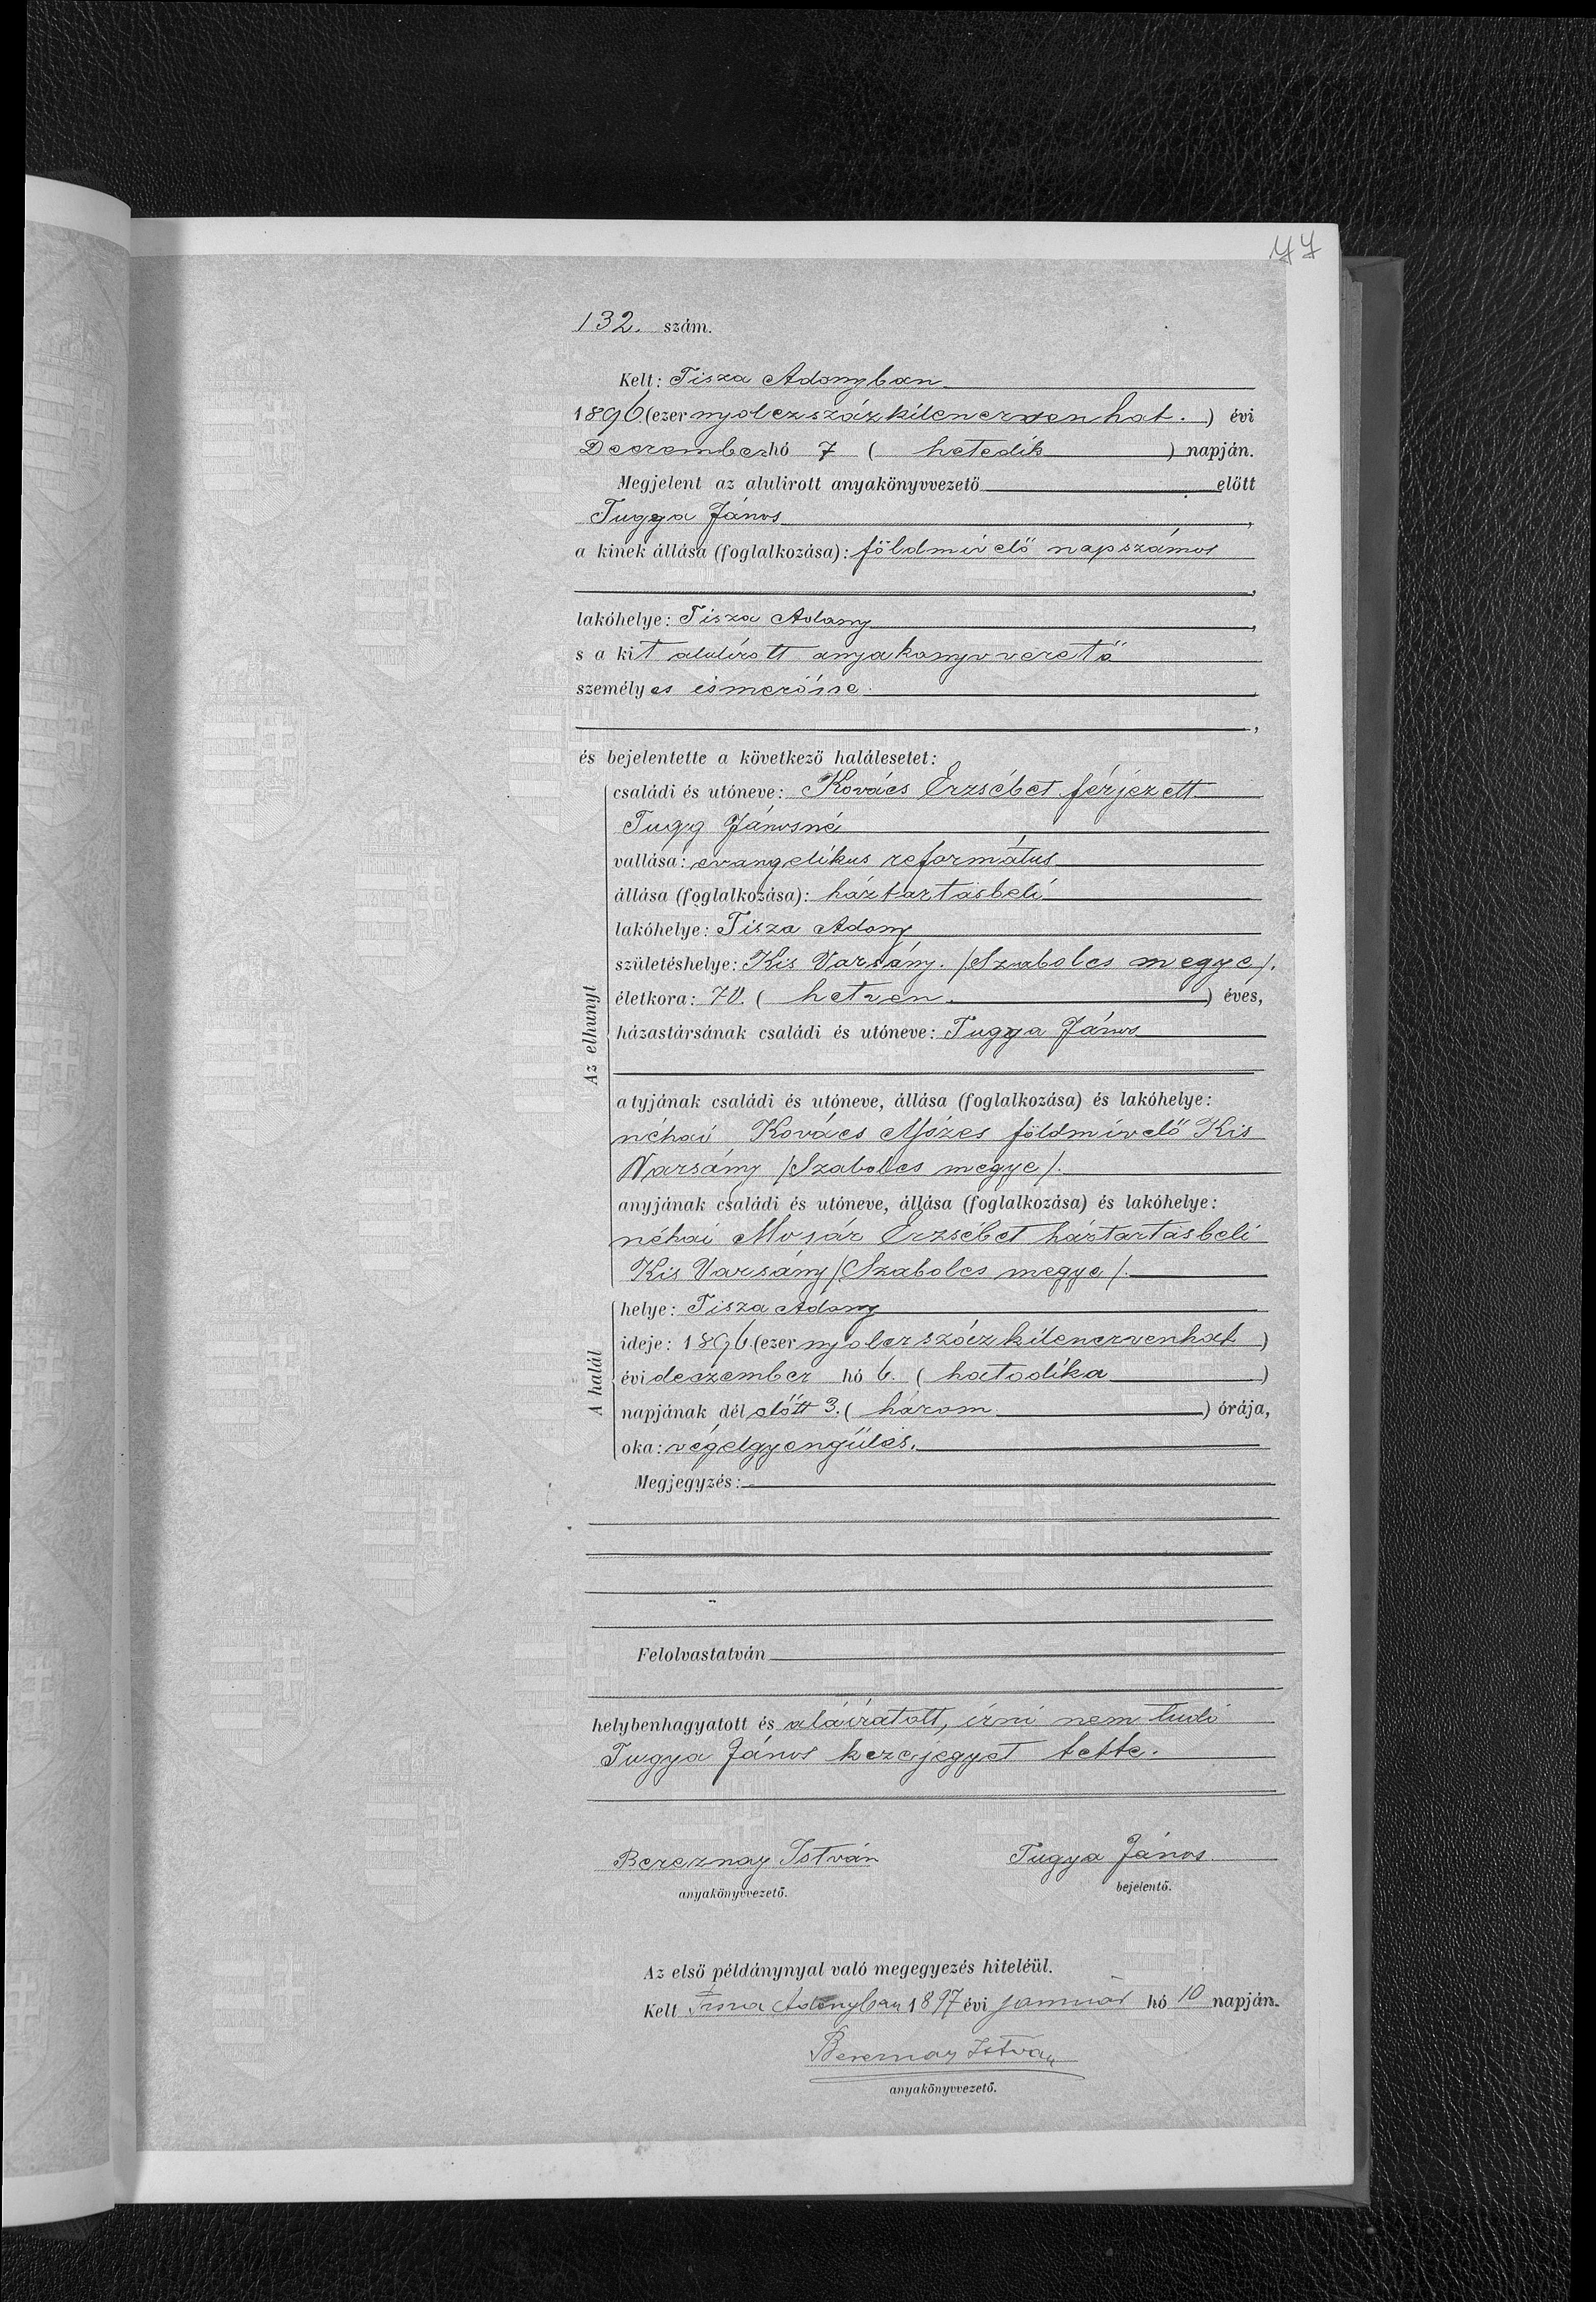 77
132. szám.
Kelt: Tisza Adonyban
1896. (ezer nyolczszázkilenczvenhat. ) évi
Deczember hó 7 ( hetedik ) napján.
Megjelent az alulirott anyakönyvvezető előtt
Tugya János ,
a kinek állása (foglalkozása): földmívelő napszámos
,
lakóhelye: Tisza Adony ,
s a kit alulírott anyakönyvvezető
személyes ismerőse ,
,
és bejelentette a következő halálesetet:
Az elhunyt
családi és utóneve: Kovács Erzsébet férjezett
Tugy Jánosné
vallása: evangelikus református
állása (foglalkozása): háztartásbeli
lakóhelye: Tisza Adony
születéshelye: Kis Varsány. /Szabolcs megye/.
életkora: 70. ( hetven. ) éves,
házastársának családi és utóneve: Tugya János
atyjának családi és utóneve, állása (foglalkozása) és lakóhelye:
néhai Kovács Mózes földmívelő Kis
Varsány /Szabolcs megye/.
anyjának családi és utóneve, állása (foglalkozása) és lakóhelye:
néhai Mosár Erzsébet háztartásbeli
Kis Varsány /Szabolcs megye/.
A halál
helye: Tisza Adony
ideje: 1896. (ezer nyolczszázkilenczvenhat )
évi deczember hó 6. ( hatodika )
napjának dél előtt 3. ( három ) órája,
oka: végelgyengülés.
Megjegyzés:
Felolvastatván
helybenhagyatott és aláíratott, írni nem tudó
Tugya János kezejegyet tette.
Bereznay István
anyakönyvvezető.
Tugya János.
bejelentő.
Az első példánynyal való megegyezés hiteléül.
Kelt Tisza Adonyban 1897 évi január hó 10 napján.
Bereznay István
anyakönyvvezető.